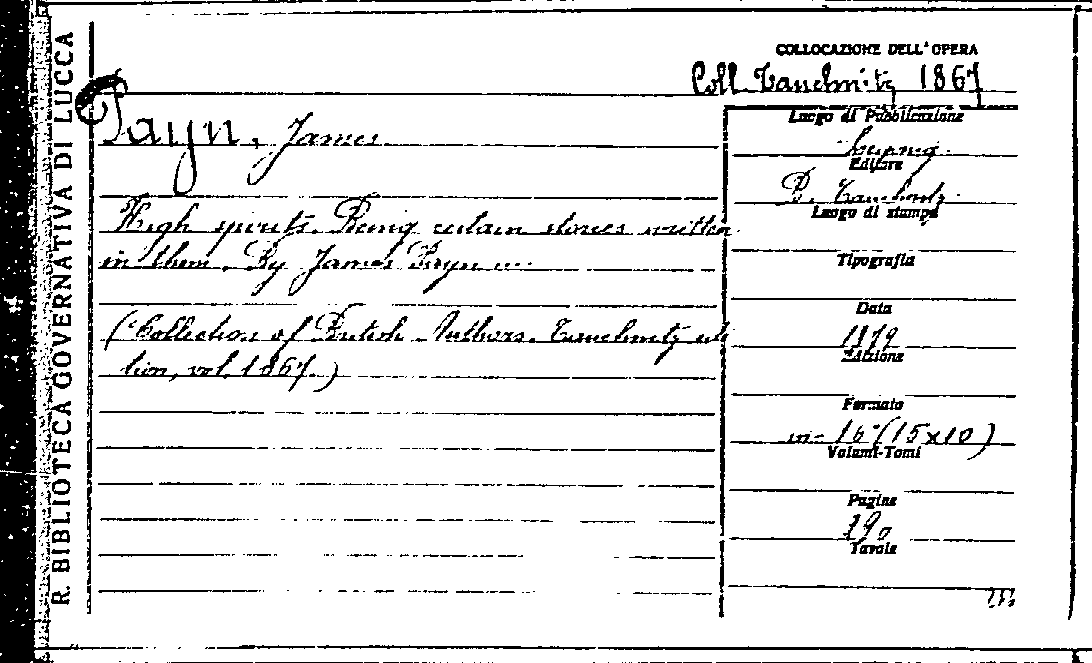 R. BIBLIOTECA GOVERNATIVA DI LUCCA
COLLOCAZIONE DELL'OPERA
Coll. Tauchnitz 1867
Payn, James
High spirits. Being certain stories written
in them. By James Payn ...
("Collection of British Authors. Tauchnitz edi
tion, vol. 1867.)
Luogo di Pubblicazione
Leipzig
Editore
B. Tauchnitz
Luogo di stampa
Tipografia
Data
1879
Edizione
Formato
in-16° (15x10)
Volumi-Tomi
Pagine
290
Tavole